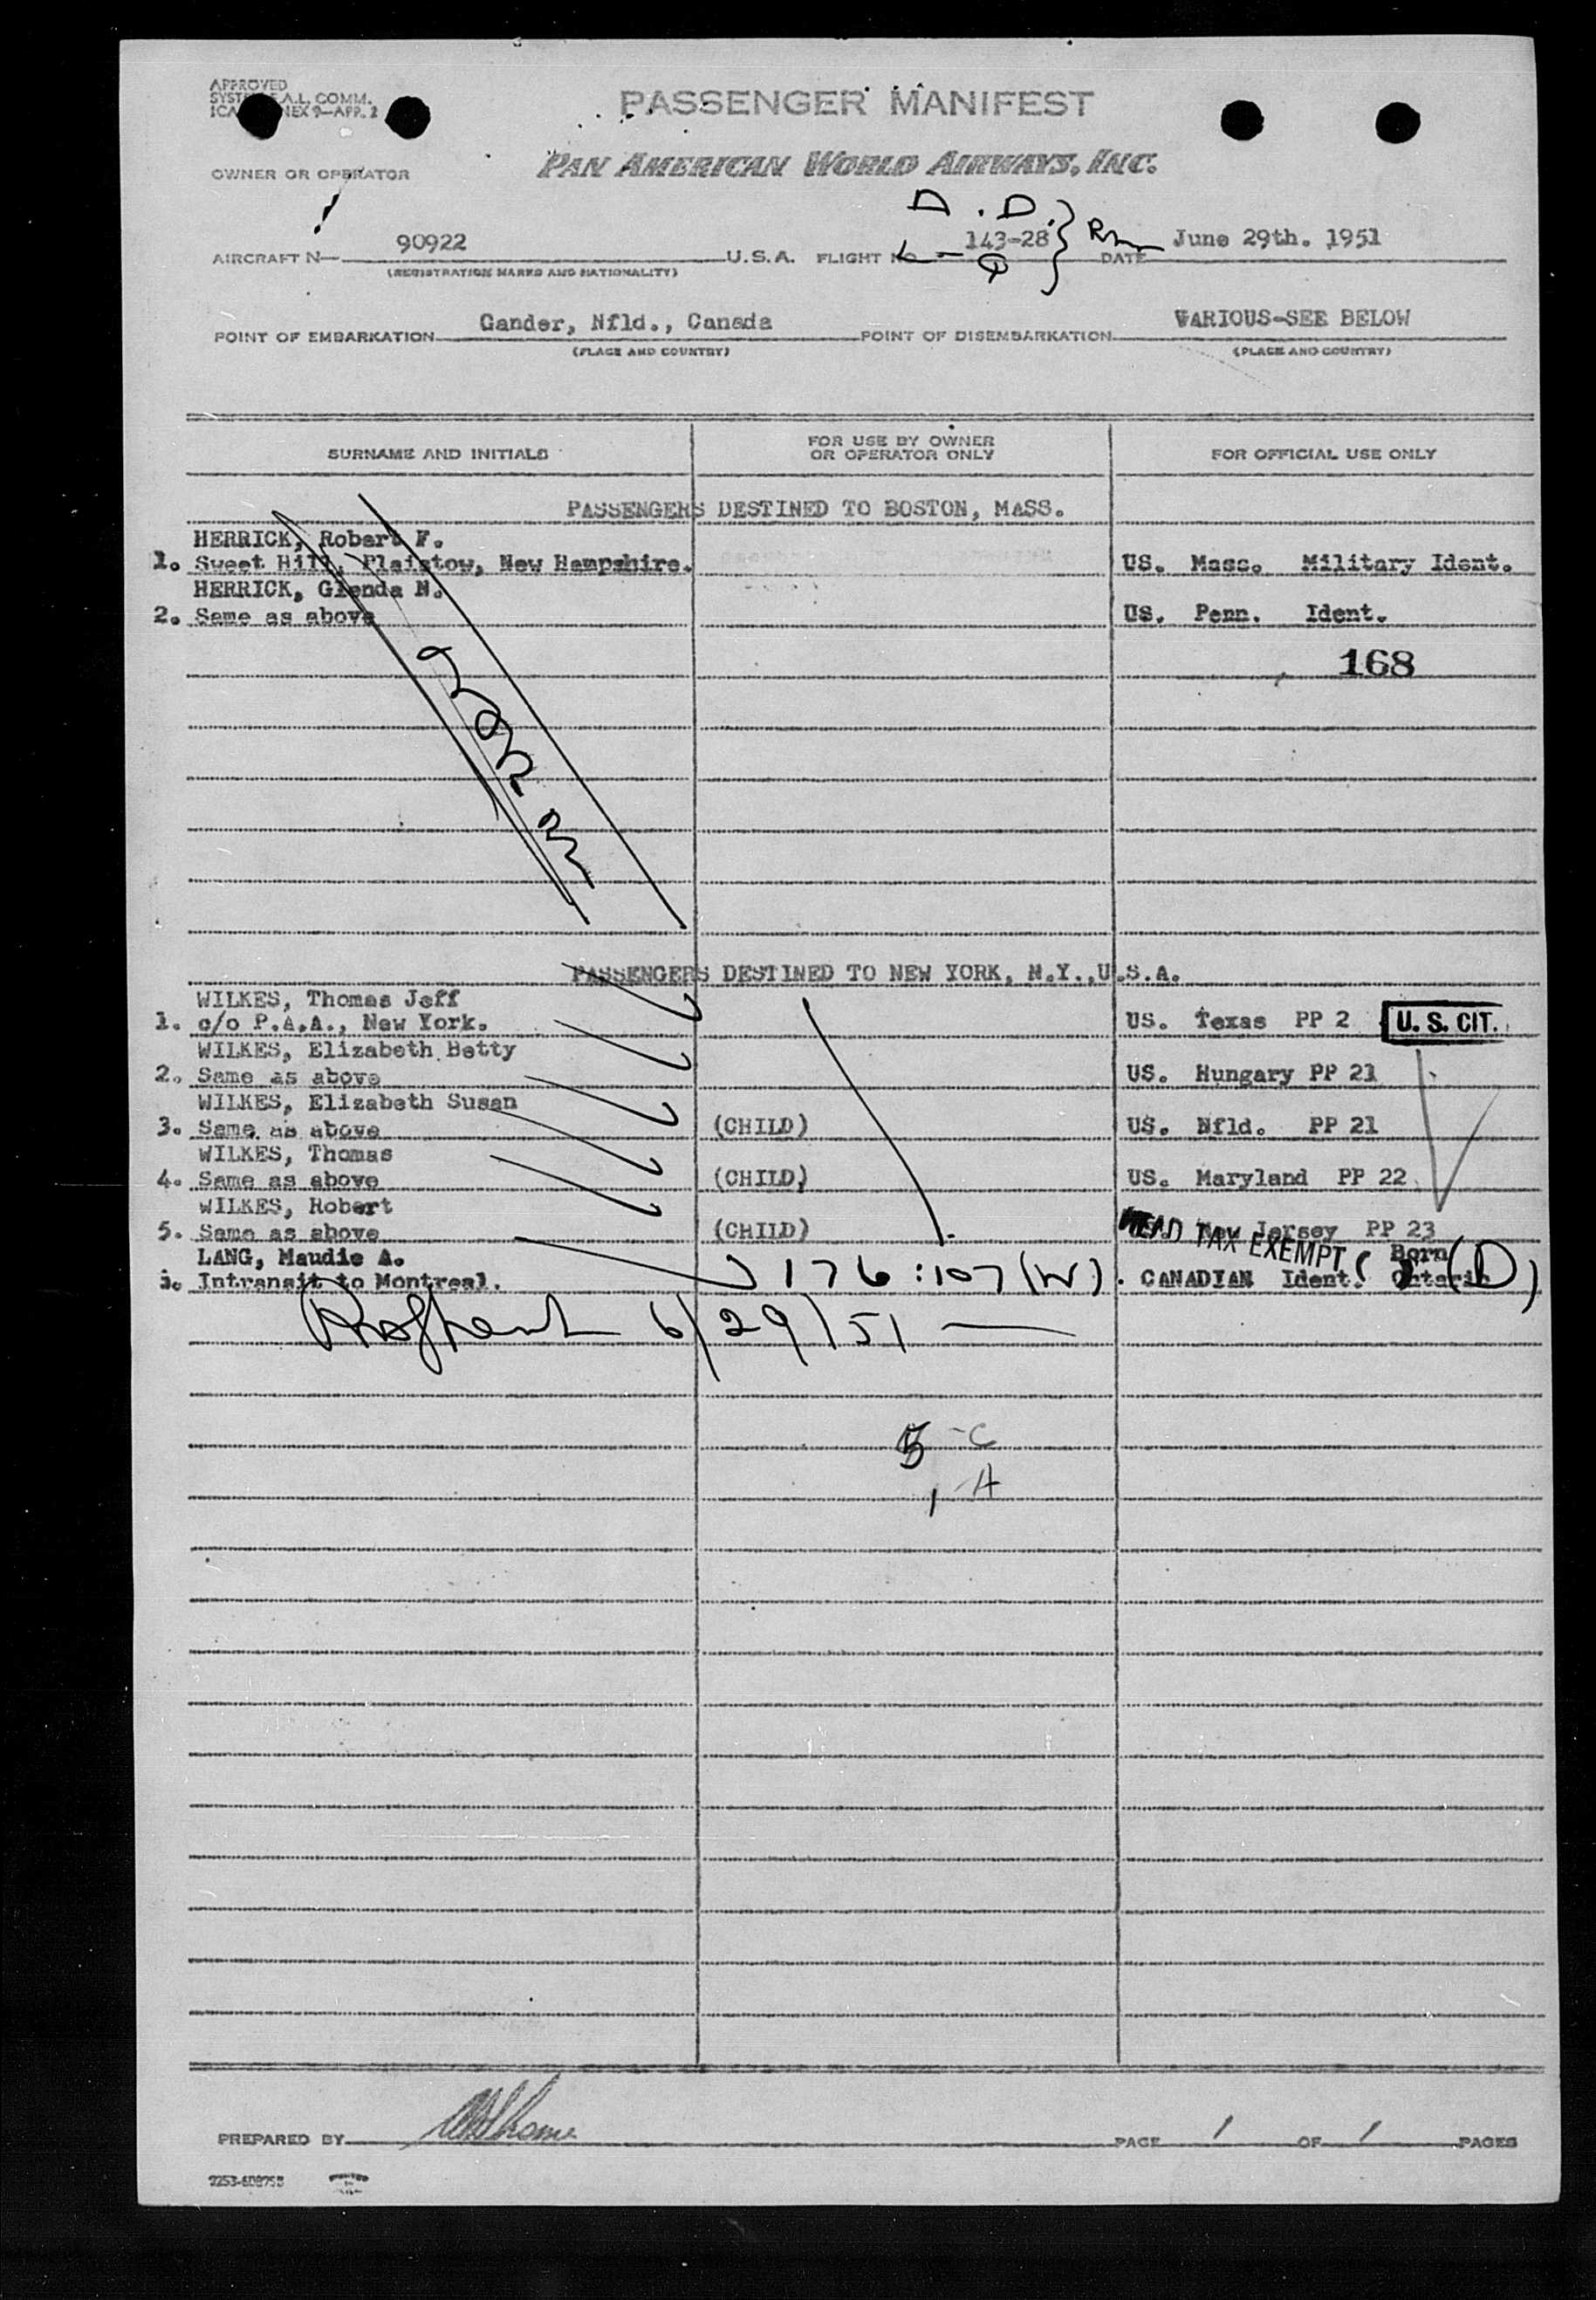 APPROVED
A.L. COMM.
PASSENGER MANIFEST
PAN AMERICAN WORLD AIRWAYS, INC.
OWNER OR OPERATOR
AIRCRAFT N 90922 U.S.A. FLIGHT NO 143-28 DATE June 29th. 1951
(REGISTRATION MARKS AND NATIONALITY)
POINT OF EMBARKATION Gander, Nfld., Canada POINT OF DISEMBARKATION VARIOUS-SEE BELOW
(PLACE AND COUNTRY) (PLACE AND COUNTRY)
SURNAME AND INITIALS FOR USE BY OWNER OR OPERATOR ONLY FOR OFFICIAL USE ONLY
PASSENGERS DESTINED TO BOSTON, MASS.
HERRICK, Robert F.
1. Sweet Hill, Plaistow, New Hampshire. US. Mass. Military Ident.
HERRICK, Glenda N.
2. Same as above US. Penn. Ident.
168
PASSENGERS DESTINED TO NEW YORK, N.Y.,U.S.A.
WILKES, Thomas Jeff
1. c/o P.A.A., New York. US. Texas PP 2 U. S. CIT.
WILKES, Elizabeth Betty
2. Same as above US. Hungary PP 21
WILKES, Elizabeth Susan
3. Same as above (CHILD) US. Nfld. PP 21
WILKES, Thomas
4. Same as above (CHILD) US. Maryland PP 22
WILKES, Robert
5. Same as above (CHILD) Jersey PP 23
HEAD TAX EXEMPT
LANG, Maudie A. Born
Intransit to Montreal. 176:107(W). CANADIAN Ident. Ontario (D)
6/29/51
5 -C
1 A
PREPARED BY PAGE 1 OF 1 PAGES